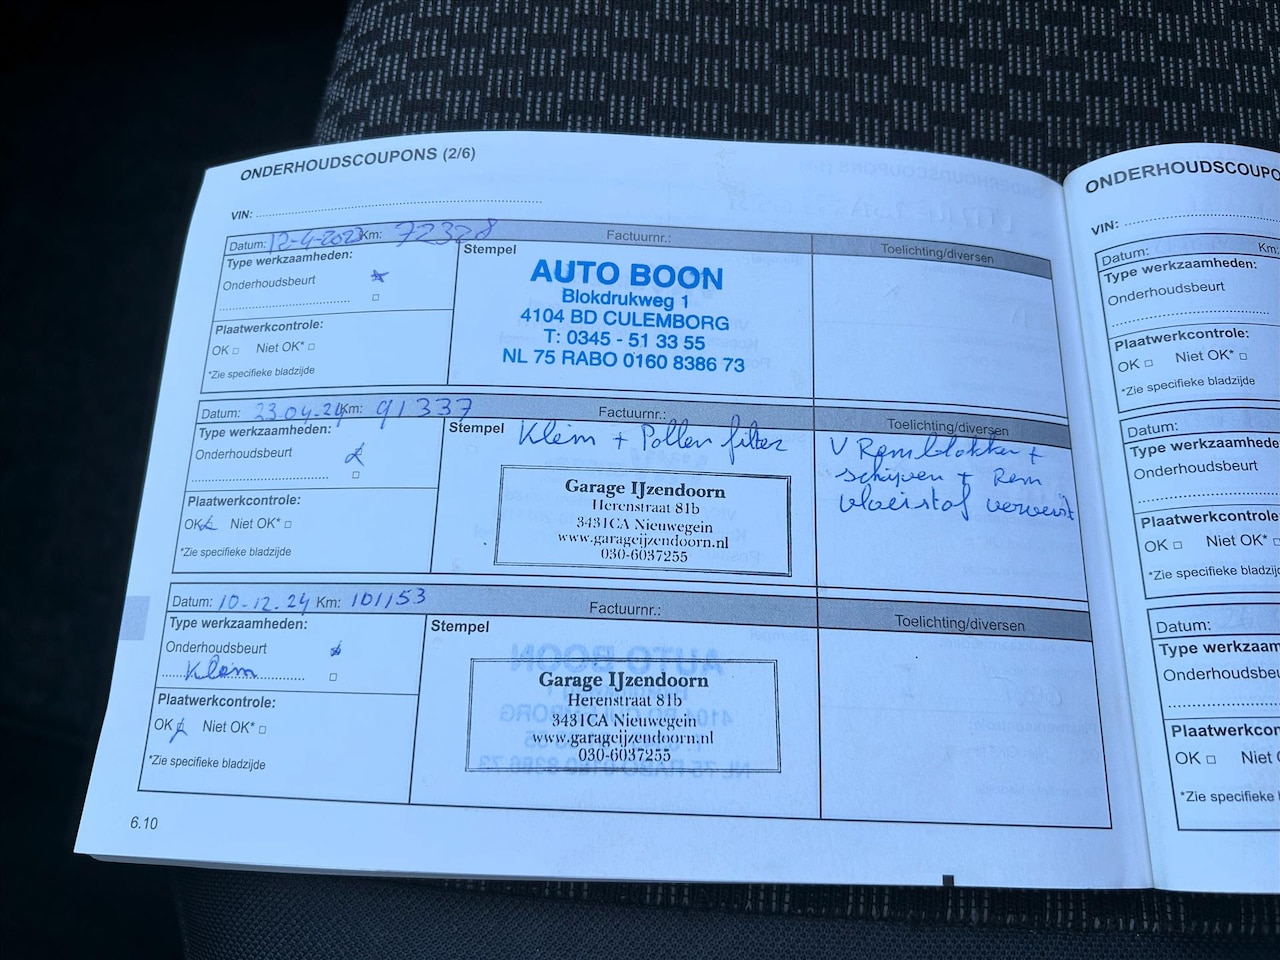 ONDERHOUDSCOUPONS (2/6)
VIN:
Datum: 12-4-2023 Km: 72328 Factuurnr.: Toelichting/diversen
Type werkzaamheden:
Onderhoudsbeurt
Plaatwerkcontrole:
OK □ Niet OK* □
*Zie specifieke bladzijde
Stempel
AUTO BOON
Blokdrukweg 1
4104 BD CULEMBORG
T: 0345 - 51 33 55
NL 75 RABO 0160 8386 73
Datum: 23.04.24 Km: 91337 Factuurnr.: Toelichting/diversen
Type werkzaamheden:
Onderhoudsbeurt
Plaatwerkcontrole:
OK Niet OK* □
*Zie specifieke bladzijde
Stempel Klein + Pollen filter
Garage IJzendoorn
Herenstraat 81b
3431CA Nieuwegein
www.garageijzendoorn.nl
030-6037255
V Remblokken +
schijven + Rem
vloeistof ververst
Datum: 10-12.24 Km: 101153 Factuurnr.: Toelichting/diversen
Type werkzaamheden:
Onderhoudsbeurt
Klein
Plaatwerkcontrole:
OK Niet OK* □
*Zie specifieke bladzijde
Stempel
Garage IJzendoorn
Herenstraat 81b
3431CA Nieuwegein
www.garageijzendoorn.nl
030-6037255
6.10
ONDERHOUDSCOUPO
VIN:
Datum: Km:
Type werkzaamheden:
Onderhoudsbeurt
Plaatwerkcontrole:
OK □ Niet OK* □
*Zie specifieke bladzijde
Datum:
Type werkzaamhede
Onderhoudsbeurt
Plaatwerkcontrole
OK □ Niet OK* □
*Zie specifieke bladzij
Datum:
Type werkzaam
Onderhoudsbe
Plaatwerkco
OK □ Niet
*Zie specifieke